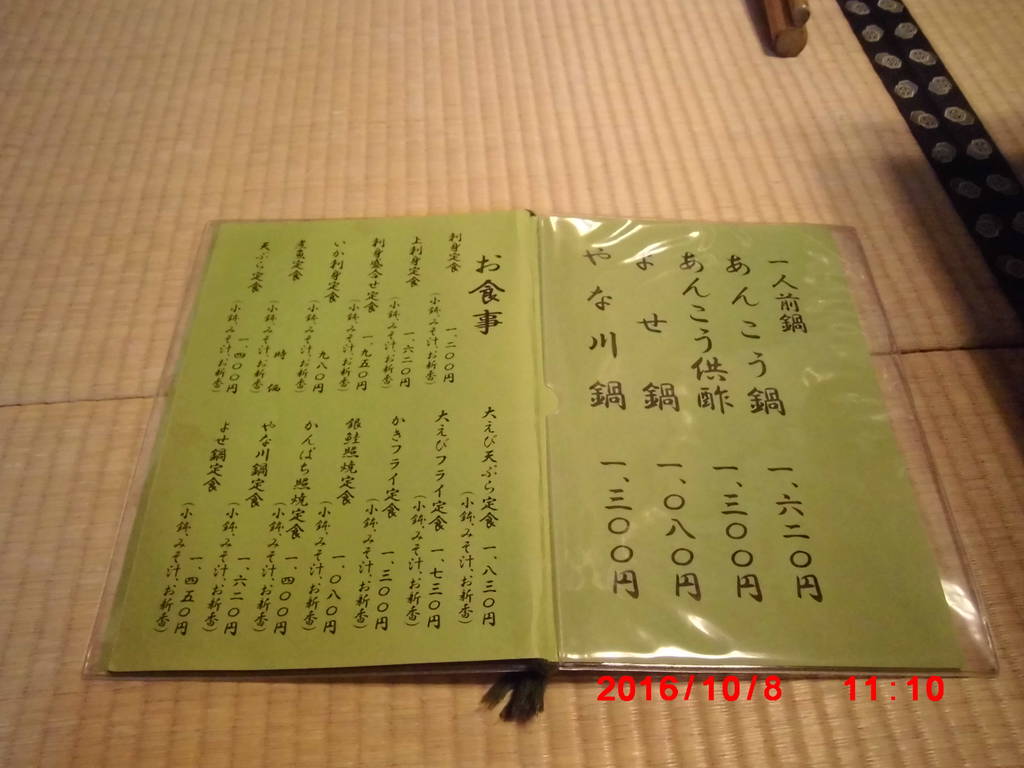 一人前鍋
あんこう鍋 一、六二〇円
あんこう供酢 一、三〇〇円
よせ鍋 一、〇八〇円
やな川鍋 一、三〇〇円
お食事
刺身定食 一、二〇〇円
(小鉢、みそ汁、お新香)
上刺身定食 一、六二〇円
(小鉢、みそ汁、お新香)
刺身盛合せ定食 一、九五〇円
(小鉢、みそ汁、お新香)
いか刺身定食 九八〇円
(小鉢、みそ汁、お新香)
煮魚定食 時価
(小鉢、みそ汁、お新香)
天ぷら定食 一、四〇〇円
(小鉢、みそ汁、お新香)
大えび天ぷら定食 一、八三〇円
(小鉢、みそ汁、お新香)
大えびフライ定食 一、七三〇円
(小鉢、みそ汁、お新香)
かきフライ定食 一、三〇〇円
(小鉢、みそ汁、お新香)
銀鮭照焼定食 一、〇八〇円
(小鉢、みそ汁、お新香)
かんぱち照焼定食 一、四〇〇円
(小鉢、みそ汁、お新香)
やな川鍋定食 一、六二〇円
(小鉢、みそ汁、お新香)
よせ鍋定食 一、四五〇円
(小鉢、みそ汁、お新香)
2016/10/8 11:10